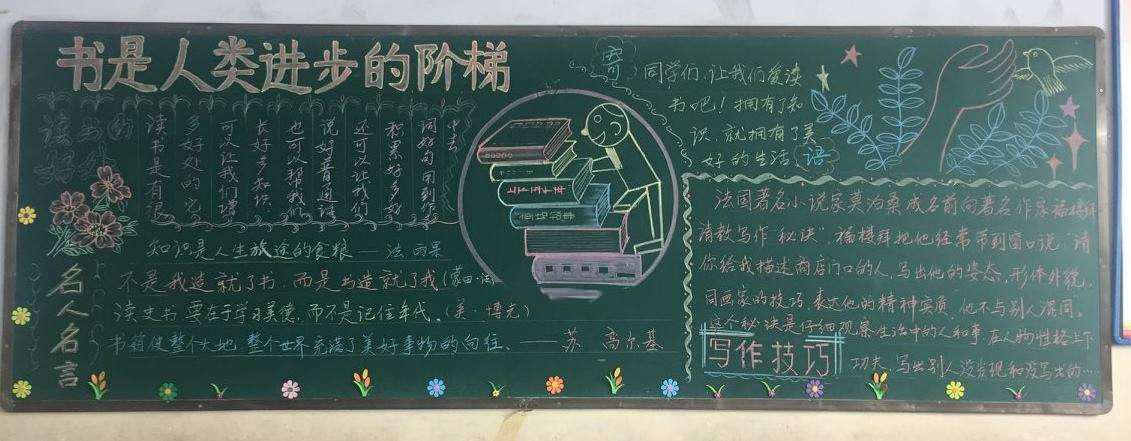 书是人类进步的阶梯
读书的
好处
读书是有很
多好处的它
可以让我们增
长好多知识
也可以帮我们
说好普通话
还可以让我们
积累好多好
词好句用到作
中去
知识是人生旅途的食粮——法 雨果
不是我造就了书，而是书造就了我(蒙田·法
读史书要在于学习美德，而不是记住年代。(美·博克)
书籍使整个大地 整个世界充满了美好事物的向往 ——苏 高尔基
名人名言
上下五千年
寄
语
同学们，让我们爱读
书吧！拥有了知
识，就拥有了美
好的生活
法国著名小说家莫泊桑成名前向著名作家福楼拜
请教写作“秘诀”，福楼拜把他经常带到窗口说“请
你给我描述商店门口的人，写出他的姿态，形体外貌，
同画家的技巧，表达他的精神实质 他不与别人混同。
这个秘诀是仔细观察生活中的人和事 在人物性格上下
功夫，写出别人没发现和没写出的…
写作技巧